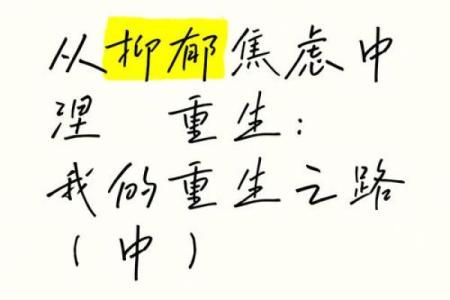 从抑郁焦虑中
涅 重生:
我的重生之路
(中)